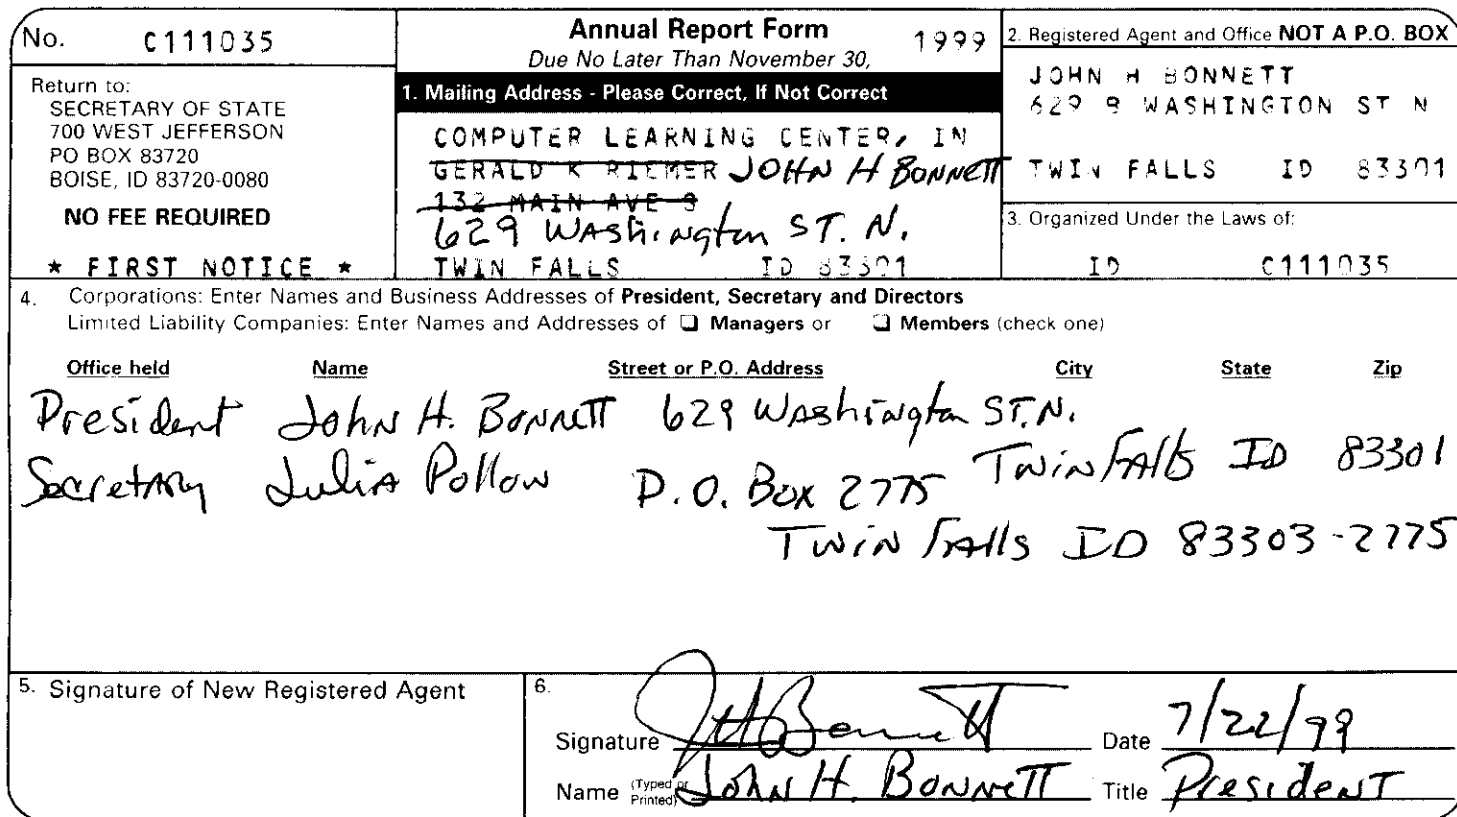 No. C111035
Annual Report Form 1999
Due No Later Than November 30,
Return to:
SECRETARY OF STATE
700 WEST JEFFERSON
PO BOX 83720
BOISE, ID 83720-0080
NO FEE REQUIRED
* FIRST NOTICE *
1. Mailing Address - Please Correct, If Not Correct
COMPUTER LEARNING CENTER, IN
GERALD K RIEMER JOHN H BONNETT
132 MAIN AVE S
629 Washington ST. N.
TWIN FALLS ID 83301
2. Registered Agent and Office NOT A P.O. BOX
JOHN H BONNETT
629 WASHINGTON ST N
TWIN FALLS ID 83301
3. Organized Under the Laws of:
ID C111035
4. Corporations: Enter Names and Business Addresses of President, Secretary and Directors
Limited Liability Companies: Enter Names and Addresses of ❏ Managers or ❏ Members (check one)
Office held Name Street or P.O. Address City State Zip
President John H. Bonnett 629 Washington ST. N.
Twin Falls ID 83301
Secretary Julia Pollow P.O. Box 2775
Twin Falls ID 83303-2775
5. Signature of New Registered Agent
6.
Signature JHBonnett Date 7/22/99
Name (Typed or Printed) John H. Bonnett Title President